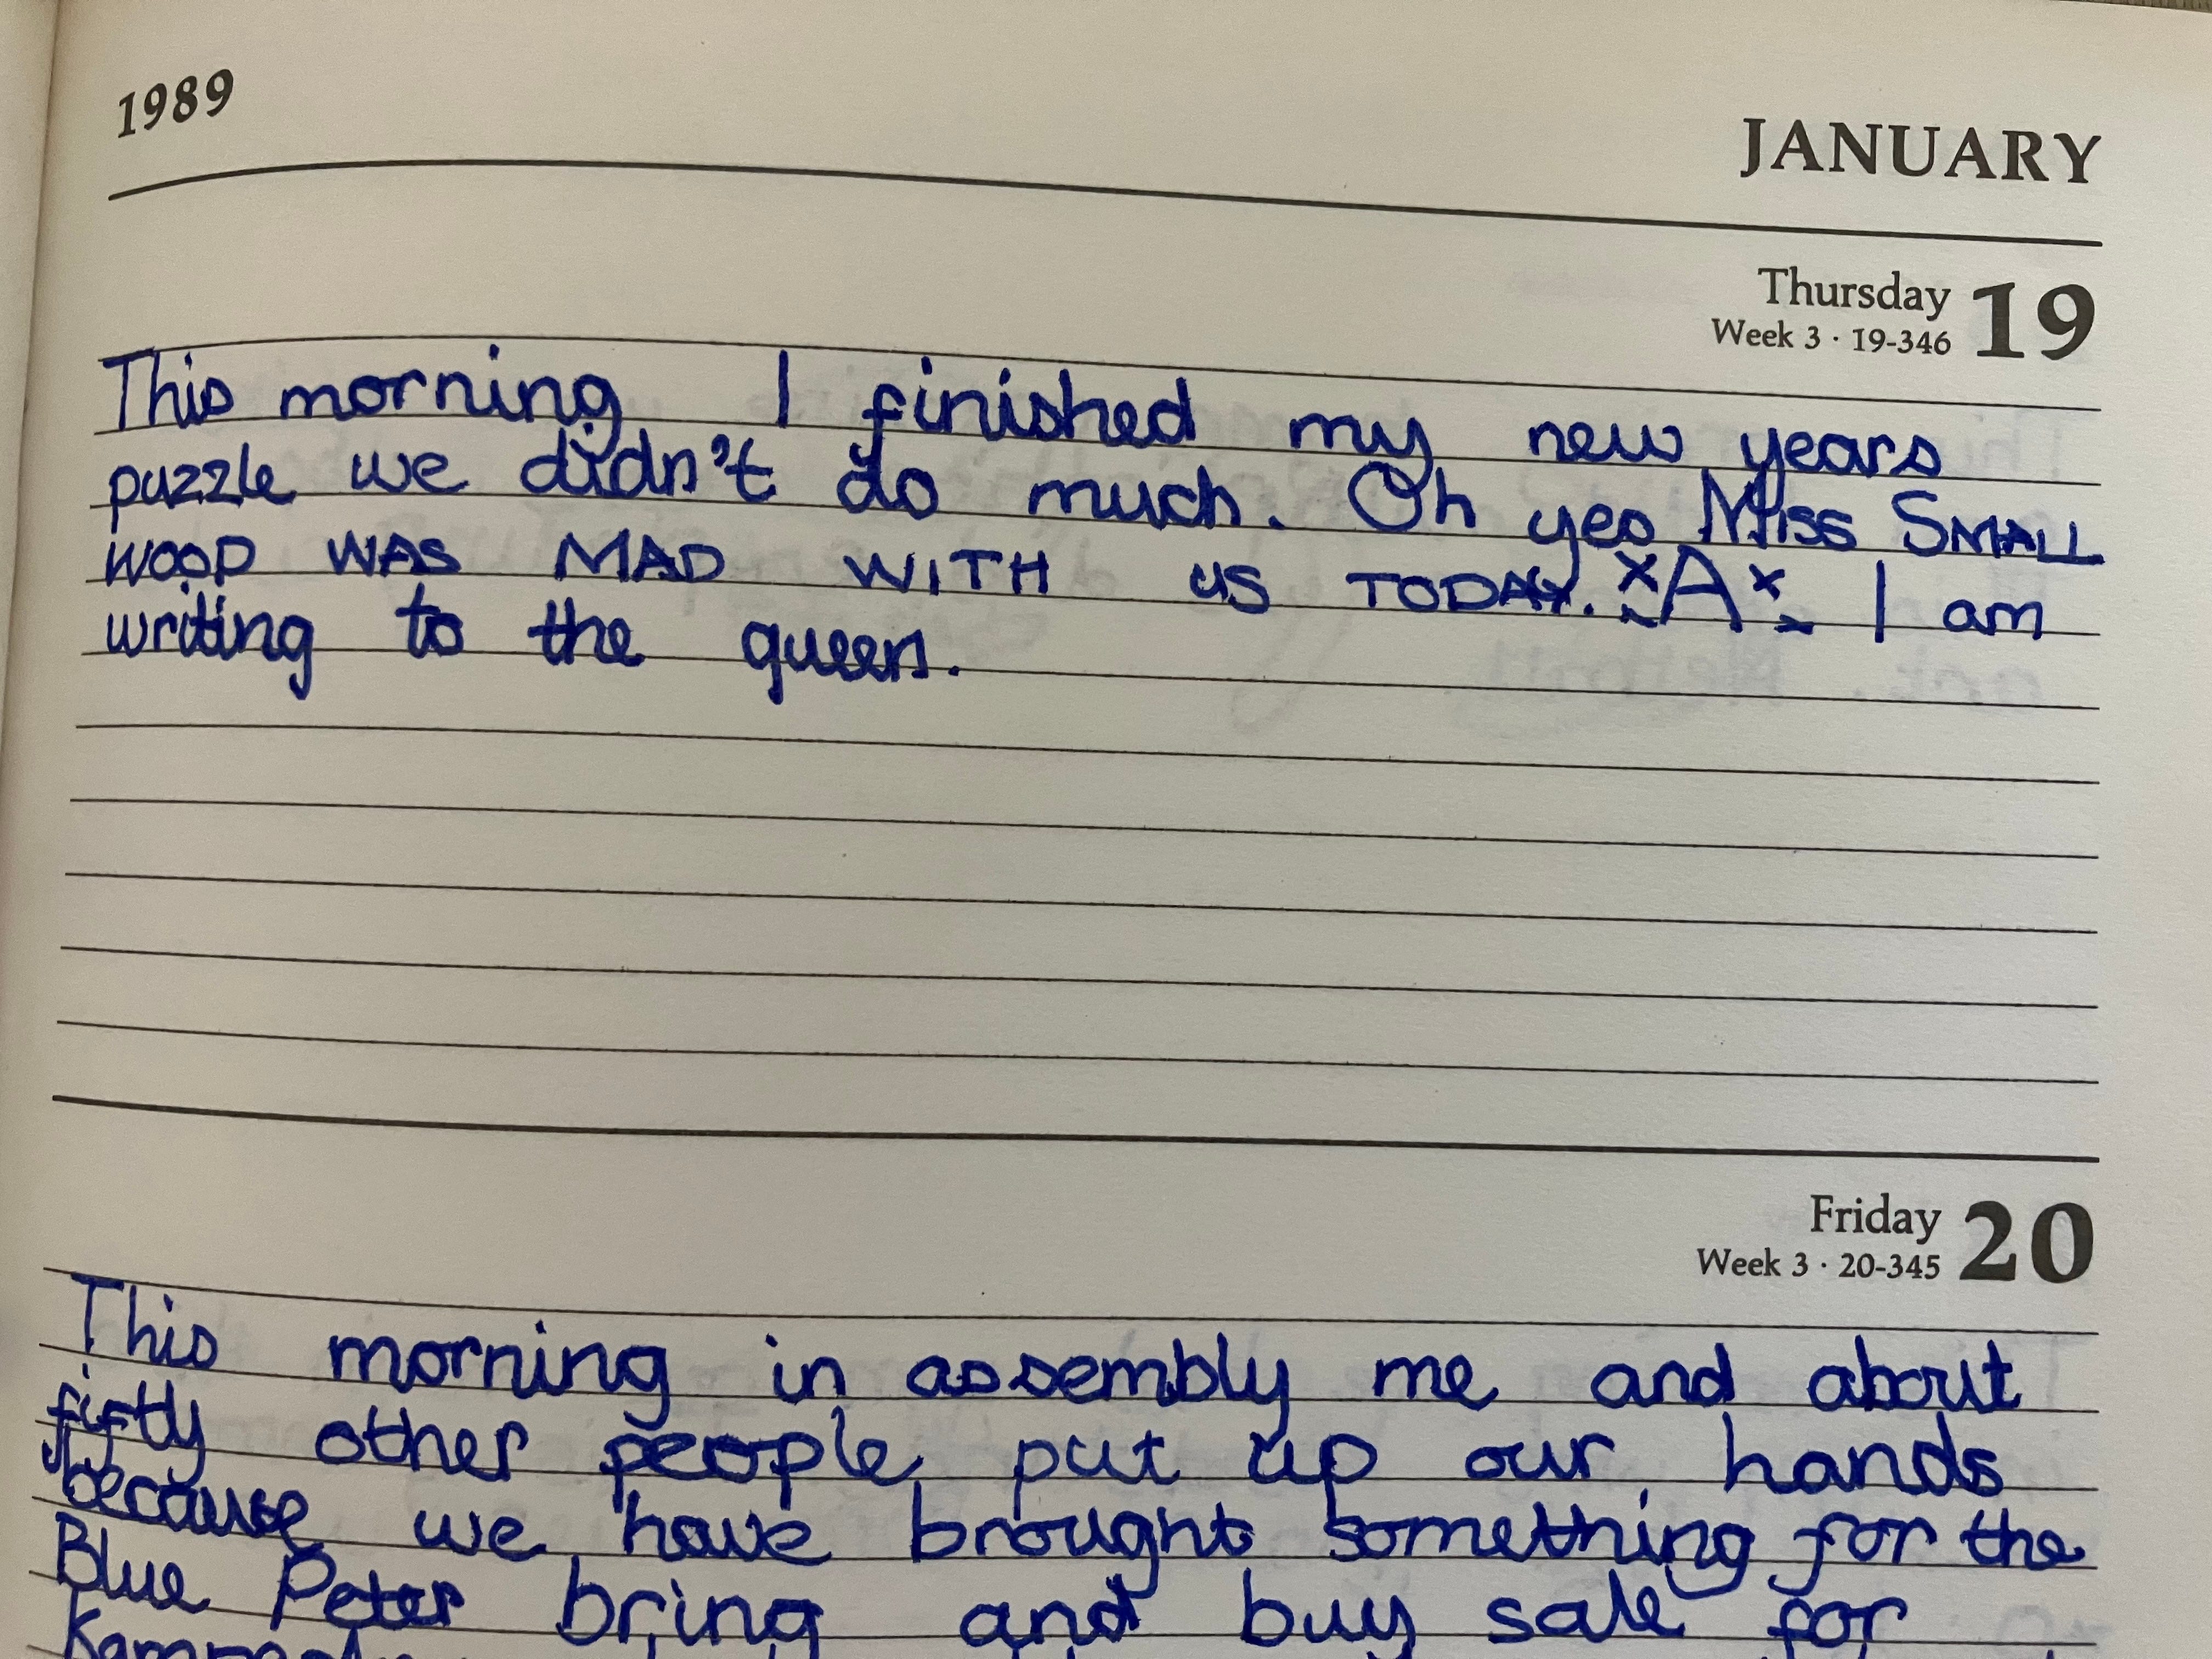 1989
JANUARY
Thursday 19
Week 3 · 19-346
This morning I finished my new years
puzzle we didn't do much. Oh yes MISS SMALL
WOOD WAS MAD WITH US TODAY. xAx I am
writing to the queen.
Friday 20
Week 3 · 20-345
This morning in assembly me and about
fifty other people put up our hands
because we have brought something for the
Blue Peter bring and buy sale for